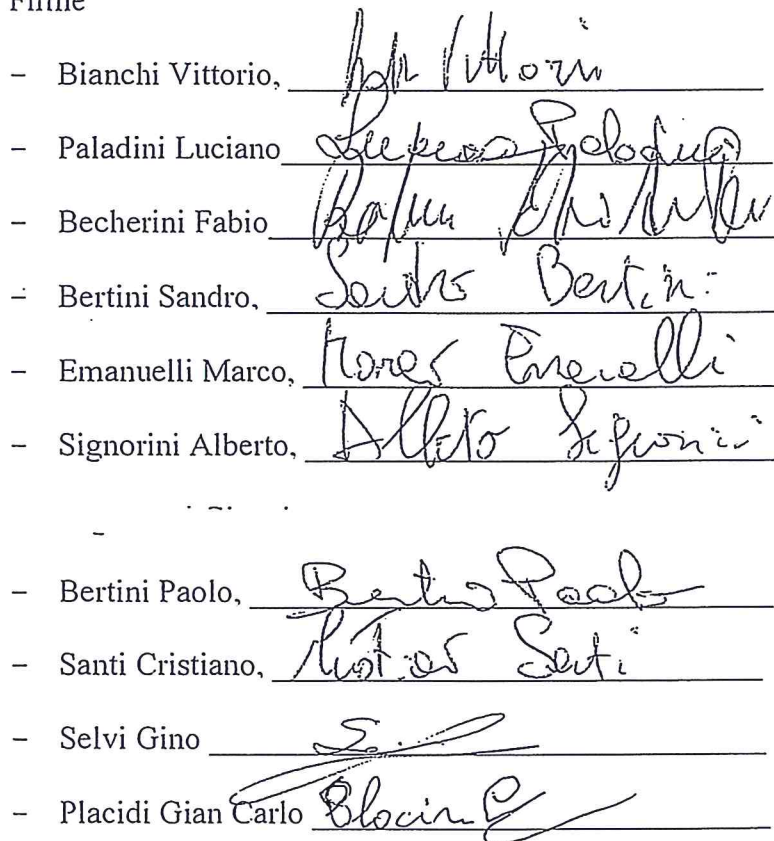 Firme
- Bianchi Vittorio, Vittorio
- Paladini Luciano Luciano Paladini
- Becherini Fabio
- Bertini Sandro, Sandro Bertini
- Emanuelli Marco, Marco Emanuelli
- Signorini Alberto, Alberto Signorini
- Bertini Paolo, Bertini Paolo
- Santi Cristiano, Cristiano Santi
- Selvi Gino
- Placidi Gian Carlo